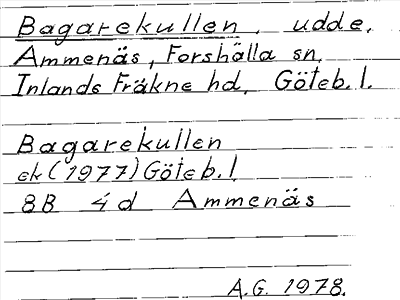 Bagarekullen, udde,
Ammenäs, Forshälla sn,
Inlands Fräkne hd, Göteb. l.
Bagarekullen
ek (1977) Göteb. l.
8B 4d Ammenäs
A.G. 1978.